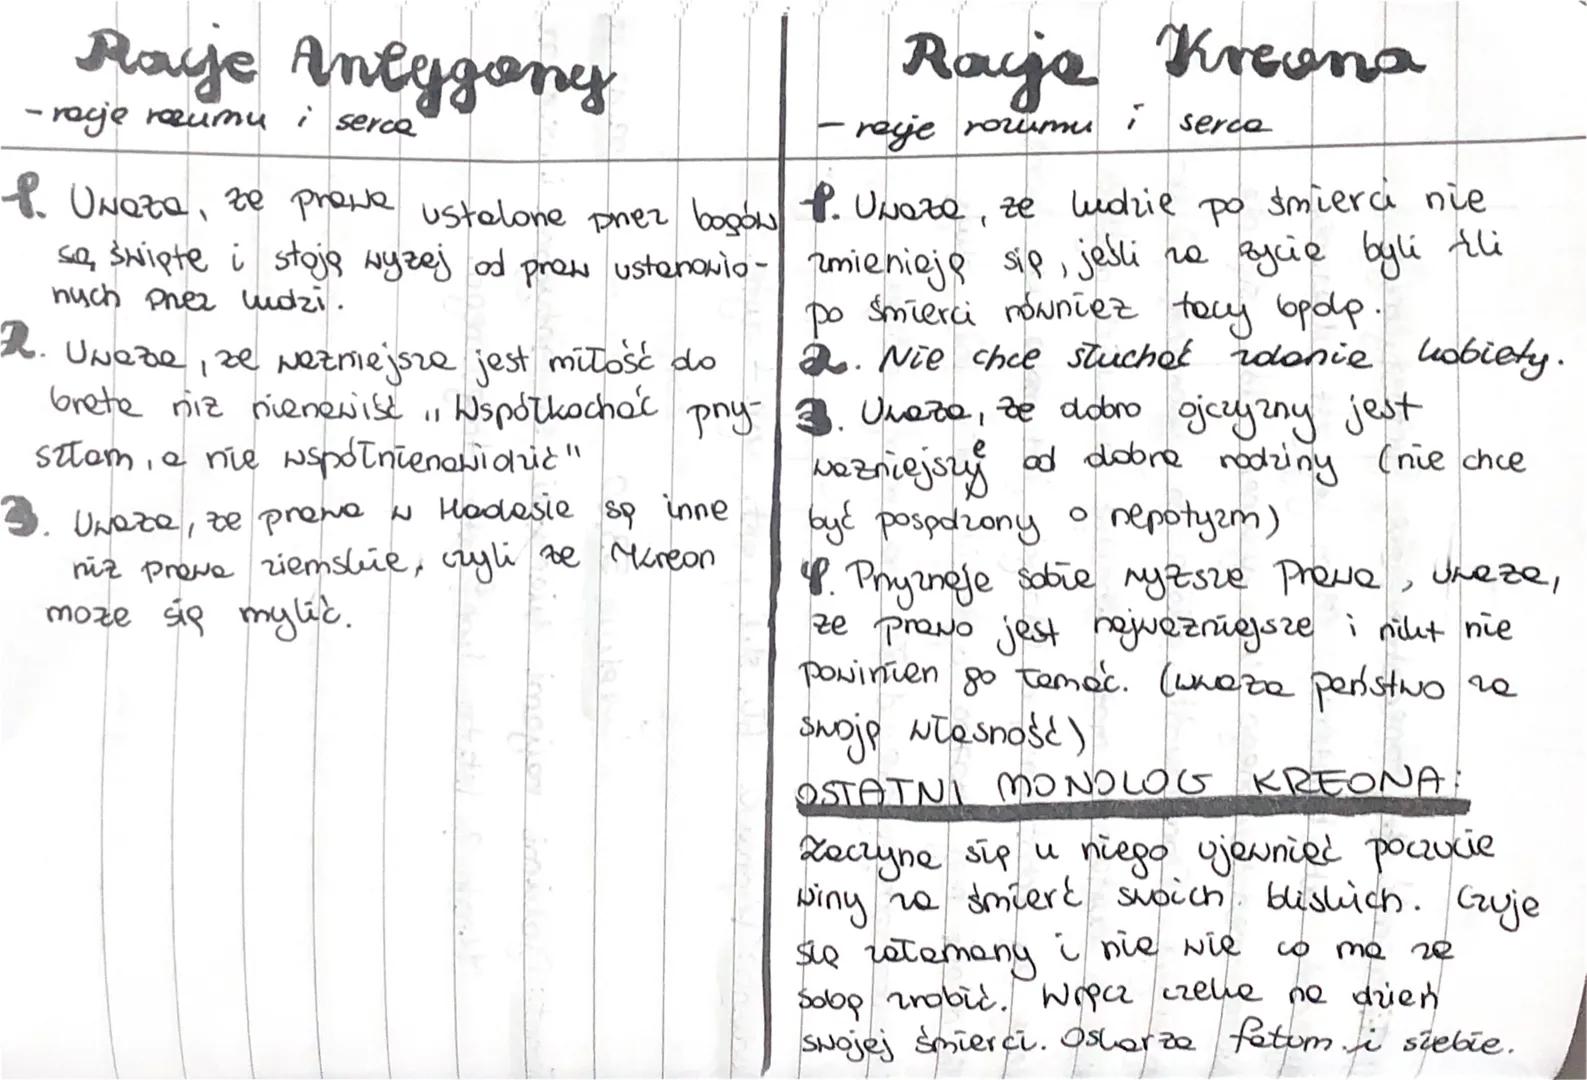 Racje Antygony
- racje rozumu i serca
1. Uważa, że prawa ustalone przez bogów
są święte i stoją wyżej od praw ustanowio-
nych przez ludzi.
2. Uważa, że ważniejsza jest miłość do
brata niż nienawiść "Współkochać przy-
szłam, a nie współnienawidzić"
3. Uważa, że prawa w Hadesie są inne
niż prawa ziemskie, czyli że Kreon
może się mylić.
Racja Kreona
- racje rozumu i serca
1. Uważa, że ludzie po śmierci nie
zmieniają się, jeśli za życia byli źli
po śmierci również tacy będą.
2. Nie chce słuchać zdania kobiety.
3. Uważa, że dobro ojczyzny jest
ważniejsze od dobra rodziny (nie chce
być posądzony o nepotyzm)
4. Przyznaje sobie wyższe prawa, uważa,
że prawo jest najważniejsze i nikt nie
powinien go łamać. (uważa państwo za
swoją własność)
OSTATNI MONOLOG KREONA:
Zaczyna się u niego ujawniać poczucie
winy za śmierć swoich bliskich. Czuje
się załamany i nie wie co ma ze
sobą zrobić. Wręcz czeka na dzień
swojej śmierci. Oskarża fatum i siebie.